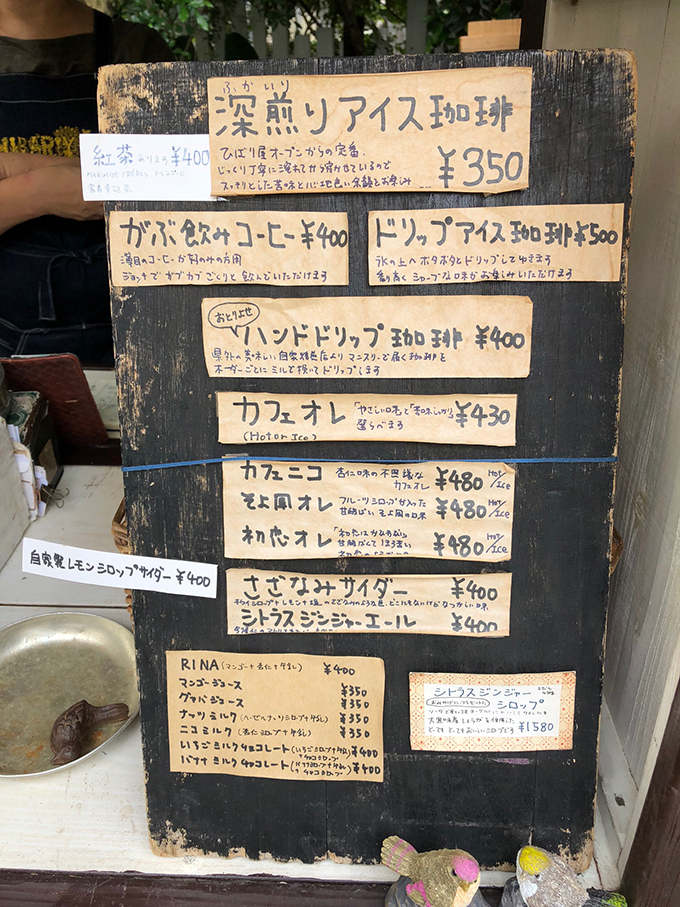 ふかいり
深煎りアイス珈琲
ひばり屋オープンからの定番。
じっくり丁寧に淹れてから冷やせているので
スッキリとした苦味と心地良い余韻をお楽しみ
¥350
紅茶 あります ¥400
がぶ飲みコーヒー ¥400
薄目のコーヒーが好みの方用
ジョッキでガブガブごくりと飲んでいただけます
ドリップアイス珈琲 ¥500
氷の上へポタポタとドリップしてゆきます
香り高くシャープな味がお楽しみいただけます
おとりよせ
ハンドドリップ珈琲 ¥400
県外の美味しい自家焙煎店よりマンスリーで届く珈琲を
オーダーごとにミルで挽いてドリップします
カフェオレ 「やさしい口味」と「苦味しっかり」 ¥430
(Hot or Ice) 選らべます
カフェニコ 杏仁味の不思議な カフェオレ ¥480 Hot/Ice
そよ風オレ フルーツシロップが入った 甘酸ぱいそよ風の味 ¥480 Hot/Ice
初恋オレ ¥480 Hot/Ice
自家製レモンシロップサイダー ¥400
さざなみサイダー ¥400
シトラスジンジャーエール ¥400
RINA (マンゴー+杏仁+牛乳) ¥400
マンゴージュース ¥350
グァバジュース ¥350
ナッツミルク (ヘーゼルナッツシロップ+牛乳) ¥350
ニコミルク (杏仁シロップ+牛乳) ¥350
いちごミルクチョコレート (いちごシロップ+牛乳+チョコシロップ) ¥400
バナナミルクチョコレート (バナナシロップ+牛乳+チョコシロップ) ¥400
シトラスジンジャー
シロップ
¥1580